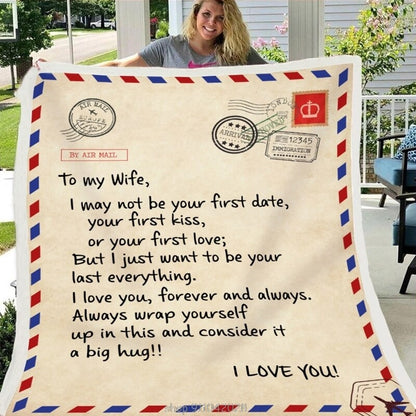 AIR MAIL
LONDON
ARRIVAL
12345
IMMIGRATION
BY AIR MAIL
To my Wife,
I may not be your first date,
your first kiss,
or your first love;
But I just want to be your
last everything.
I love you, forever and always.
Always wrap yourself
up in this and consider it
a big hug!!
I LOVE YOU!